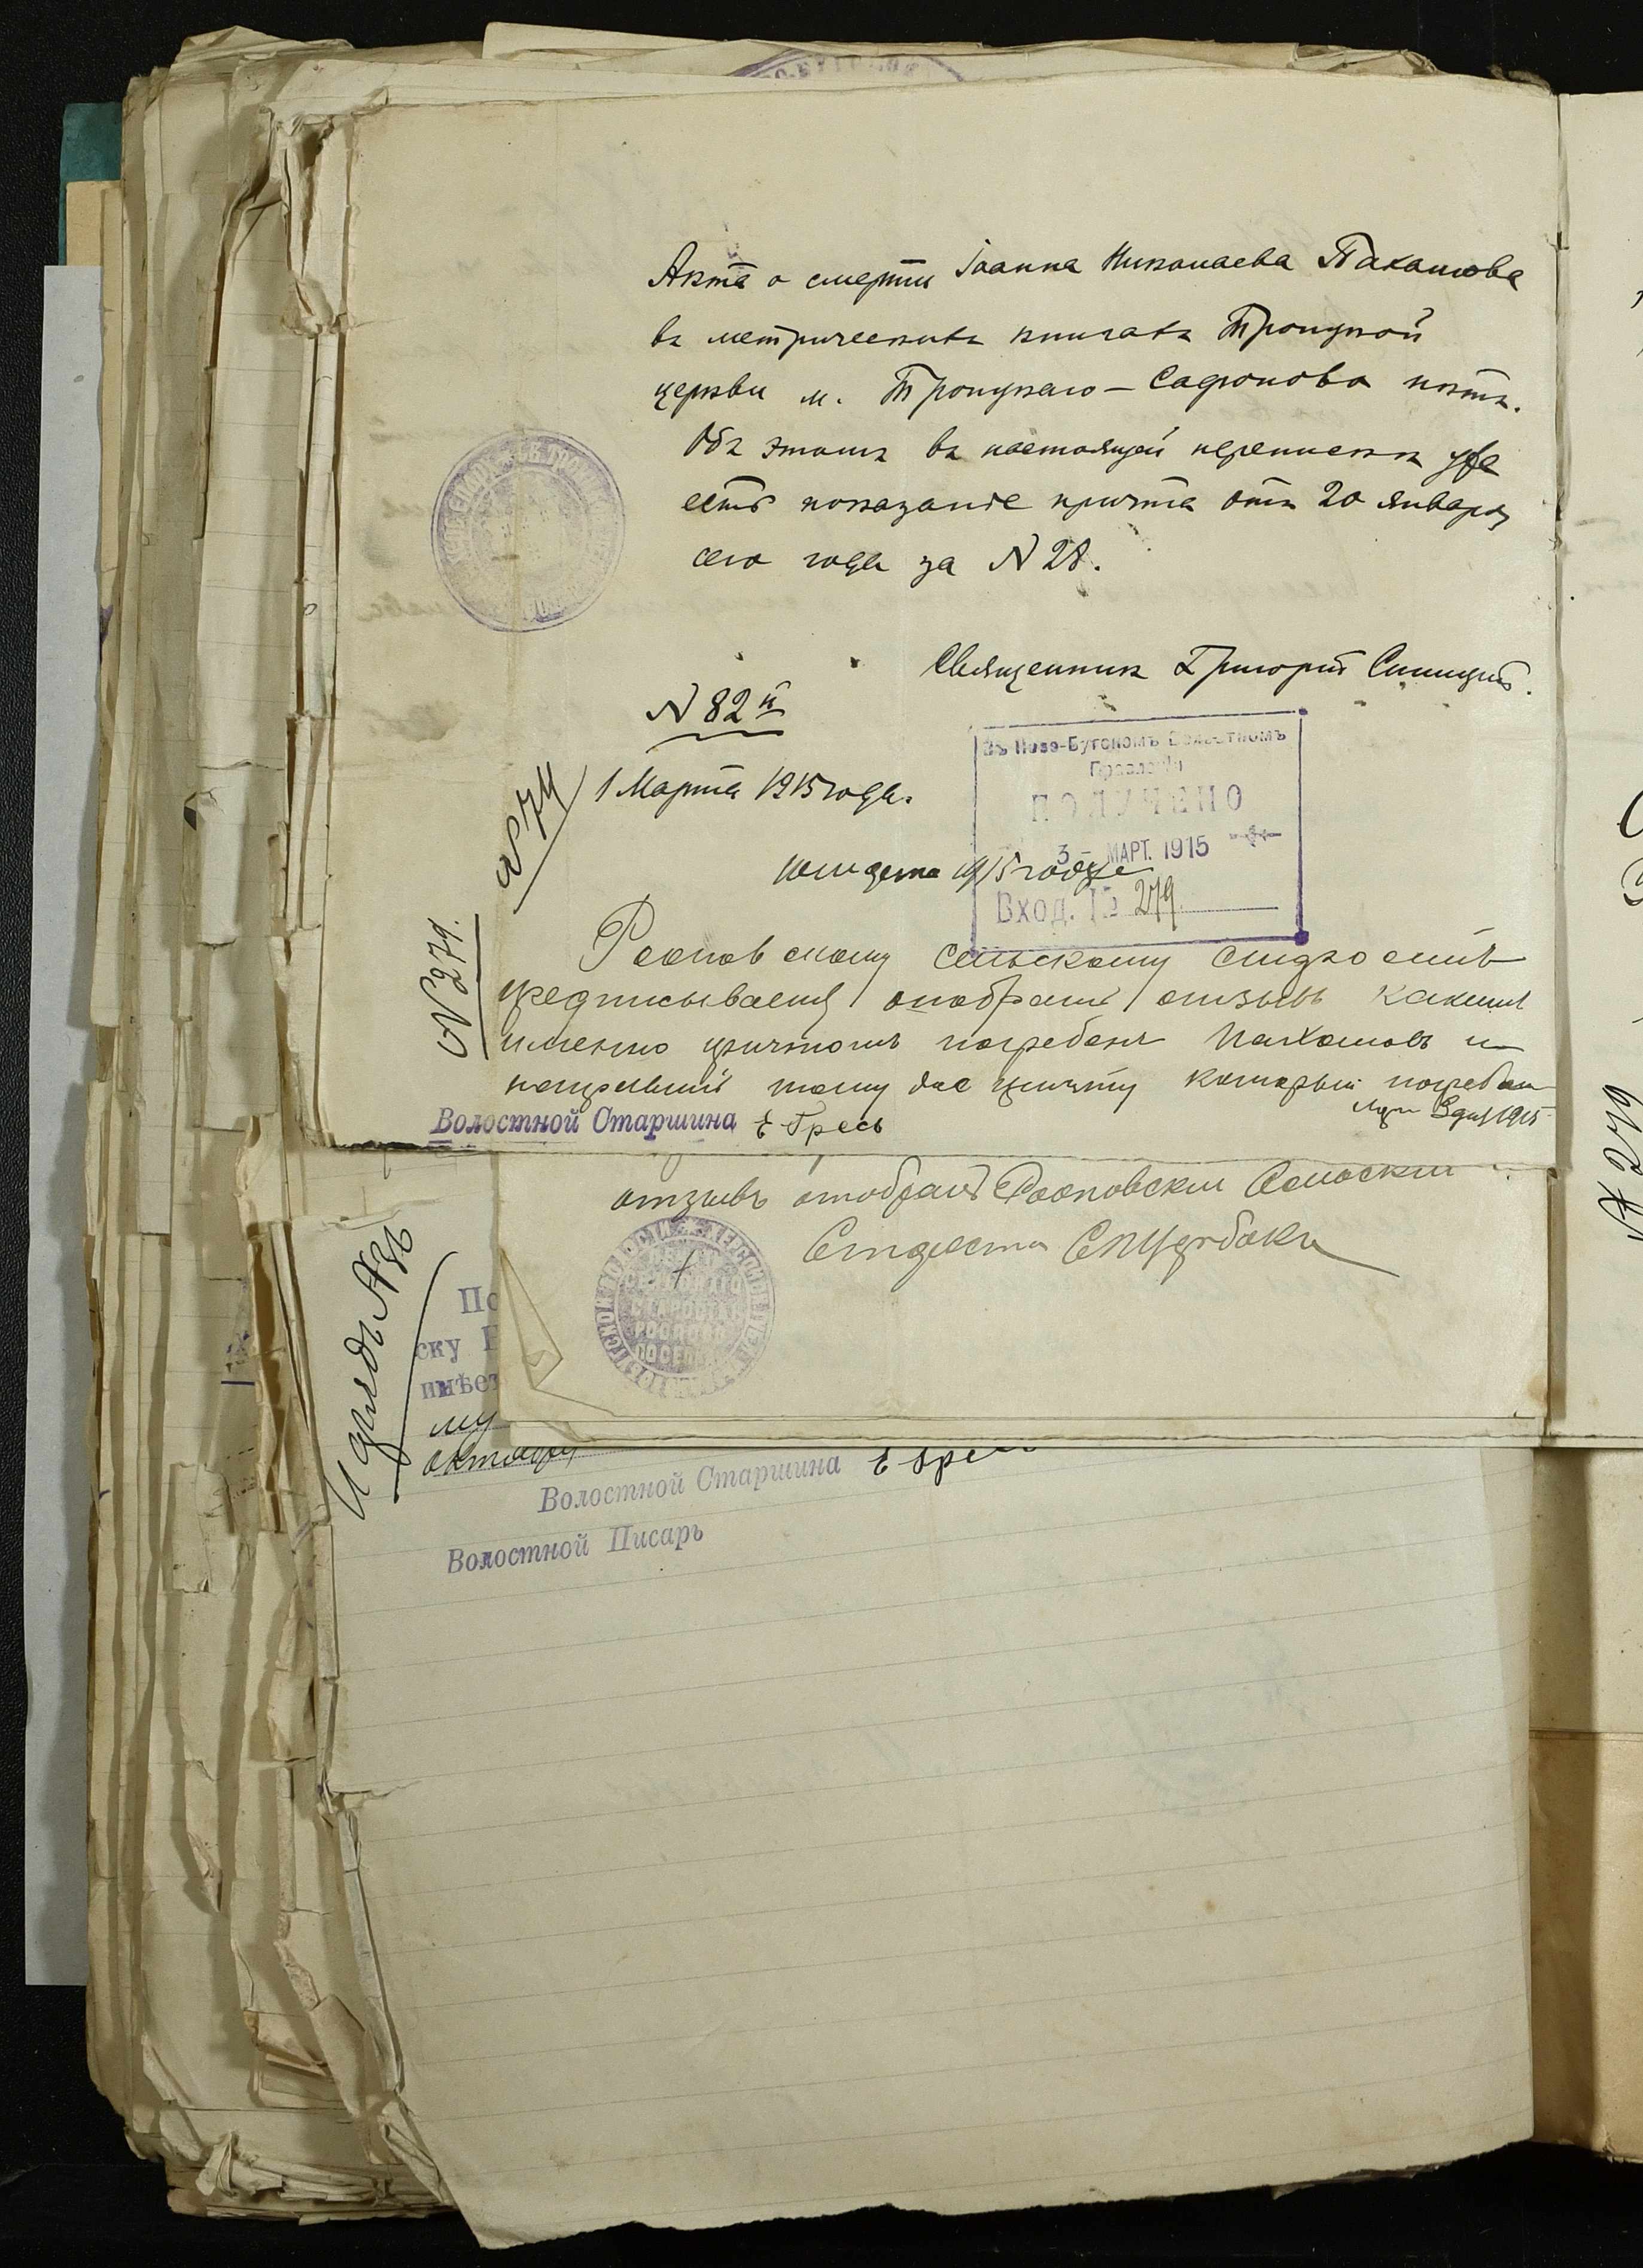 Акта о смерти Іоанна Николаева Пахомова
въ метрическихъ книгахъ Троицкой
церкви м. Троицкаго-Сафонова нѣтъ.
Объ этомъ въ настоящей перепискѣ уже
есть показаніе причта отъ 20 января
сего года за N 28.
Священникъ Григорій Синицкій.
N 82й
1 Марта 1915 года.
N 74
Въ Ново-Бугскомъ Волостномъ
Правленіи
ПОЛУЧЕНО
3 - МАРТ. 1915
Вход. № 279
марта 1915 года
N 279.
сельскому старостѣ
предписывается отобрать отзывъ какимъ
именно причтомъ погребенъ Пахомовъ и
направить тому же причту который погребалъ
Марта 3 дня 1915
Волостной Старшина Е Гресь
отзывъ отобралъ Сельскій
Староста
СЕЛЬСКАГО
СТАРОСТЫ
ПОСЕЛКА
По
ску
имѣет
му
октября
Волостной Старшина Е Гресь
Волостной Писарь
№ 279